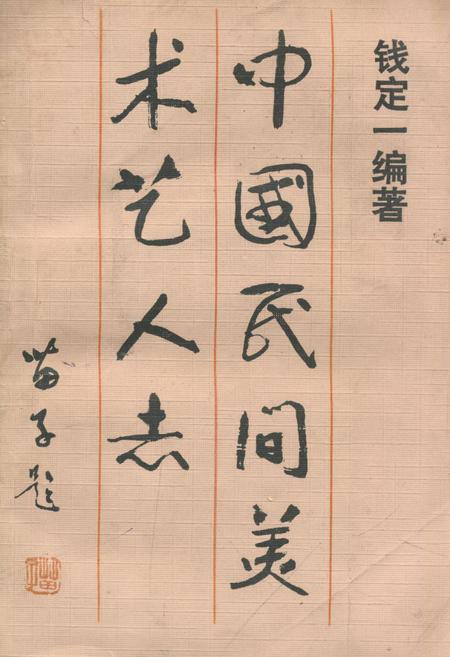 钱定一编著
中國民间美
术艺人志
苗子题